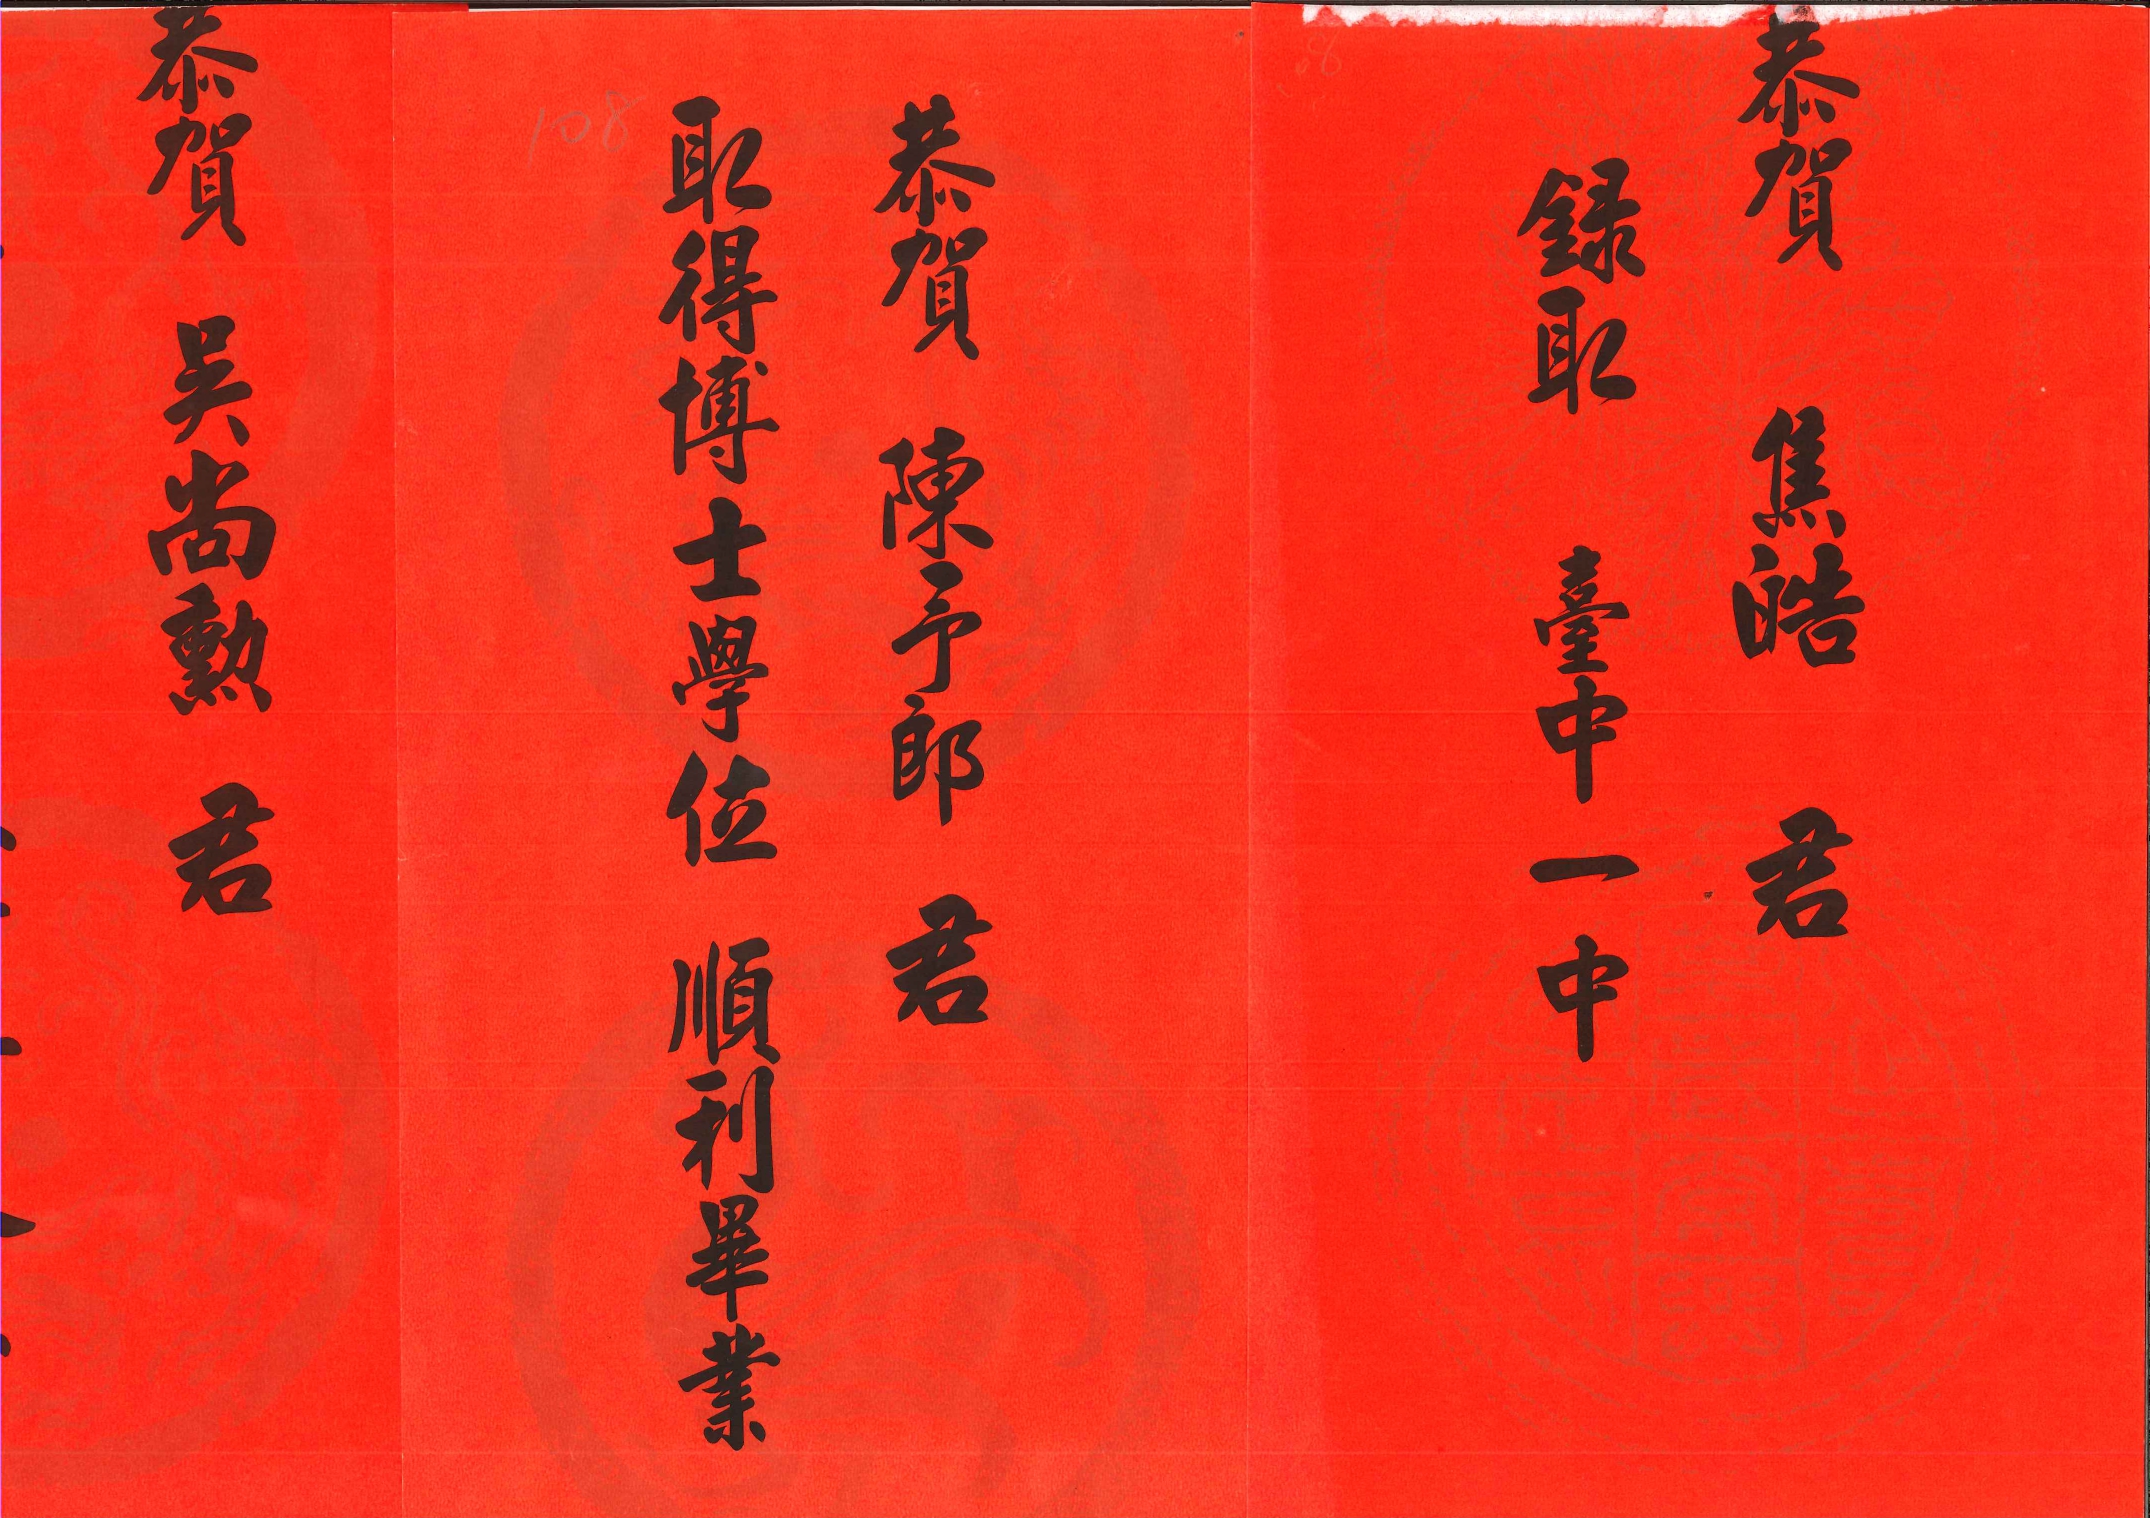 恭賀 焦皓 君
錄取 臺中一中
恭賀 陳予郎 君
取得博士學位 順利畢業
108
恭賀 吳尚勲 君